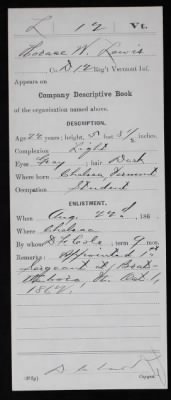 L 12 Vt.
Horace W. Lewis
Co. D 12 Reg't Vermont Inf.
Appears on
Company Descriptive Book
of the organization named above.
DESCRIPTION.
Age 22 years; height, 5 feet 8 1/2 inches.
Complexion Light
Eyes Gray; hair Dark
Where born Chelsea, Vermont
Occupation Student
ENLISTMENT.
When Aug. 22d, 186
Where Chelsea
By whom D F Cole; term 9 mos.
Remarks: Appointed 1st
Sergeant at
on Oct 1,
1862.
Copyist.